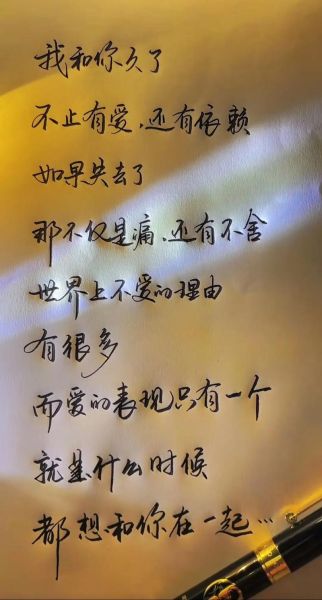 我和你久了
不止有爱,还有依赖
如果失去了
那不仅是痛,还有不舍
世界上不爱的理由
有很多
而爱的表现只有一个
就是什么时候
都想和你在一起…